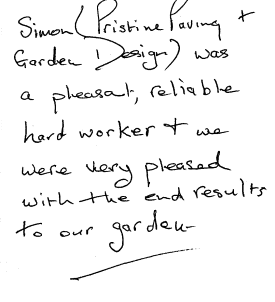 Simon (Pristine Paving +
Garden Design) was
a pleasant, reliable
hard worker + we
were very pleased
with the end results
to our garden